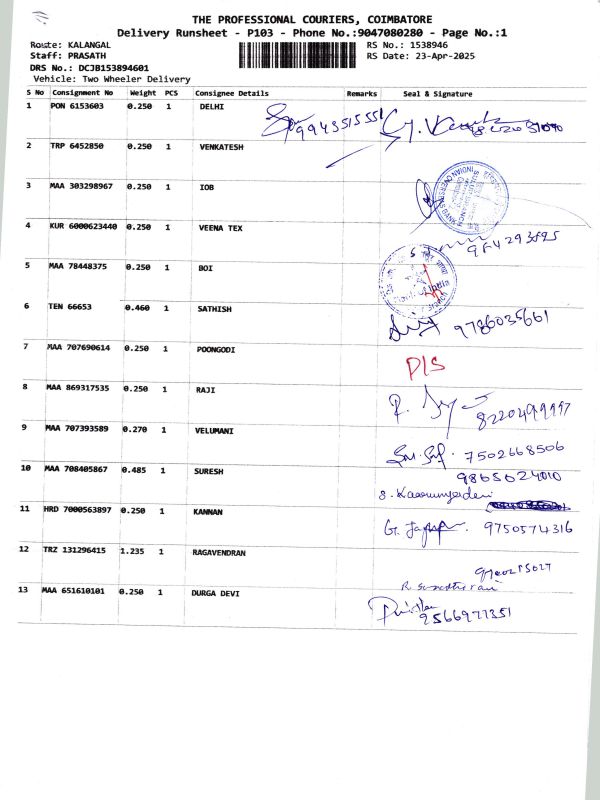 THE PROFESSIONAL COURIERS, COIMBATORE
Delivery Runsheet - P103 - Phone No.:9047080280 - Page No.:1
Route: KALANGAL RS No.: 1538946
Staff: PRASATH RS Date: 23-Apr-2025
DRS No.: DCJB153894601
Vehicle: Two Wheeler Delivery
S No Consignment No Weight PCS Consignee Details Remarks Seal & Signature
1 PON 6153603 0.250 1 DELHI 9943515551
2 TRP 6452850 0.250 1 VENKATESH
3 MAA 303298967 0.250 1 IOB
4 KUR 6000623440 0.250 1 VEENA TEX
5 MAA 78448375 0.250 1 BOI
6 TEN 66653 0.460 1 SATHISH 9786035661
7 MAA 707690614 0.250 1 POONGODI D/S
8 MAA 869317535 0.250 1 RAJI
9 MAA 707393589 0.270 1 VELUMANI 7502668506
10 MAA 708405867 0.485 1 SURESH 9865024010
11 HRD 7000563897 0.250 1 KANNAN 9750574316
12 TRZ 131296415 1.235 1 RAGAVENDRAN
13 MAA 651610101 0.250 1 DURGA DEVI 9566977351